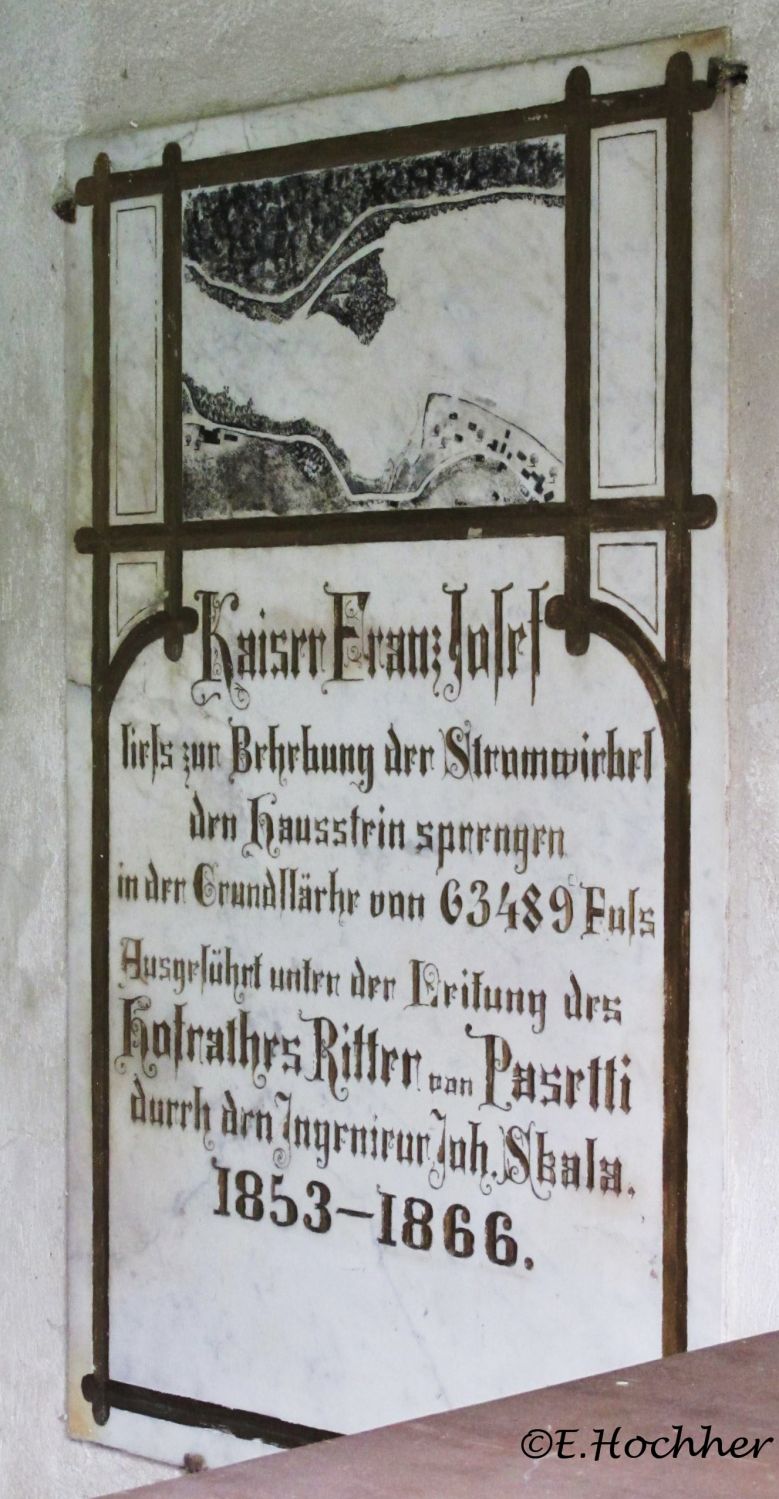 Kaiser Franz Josef
liess zur Behebung der Stromwirbel
den Hausstein sprengen
in der Grundfläche von 63489 Fuss
Ausgeführt unter der Leitung des
Hofrathes Ritter von Pasetti
durch den Ingenieur Joh. Skala.
1853-1866.
©E.Hochher